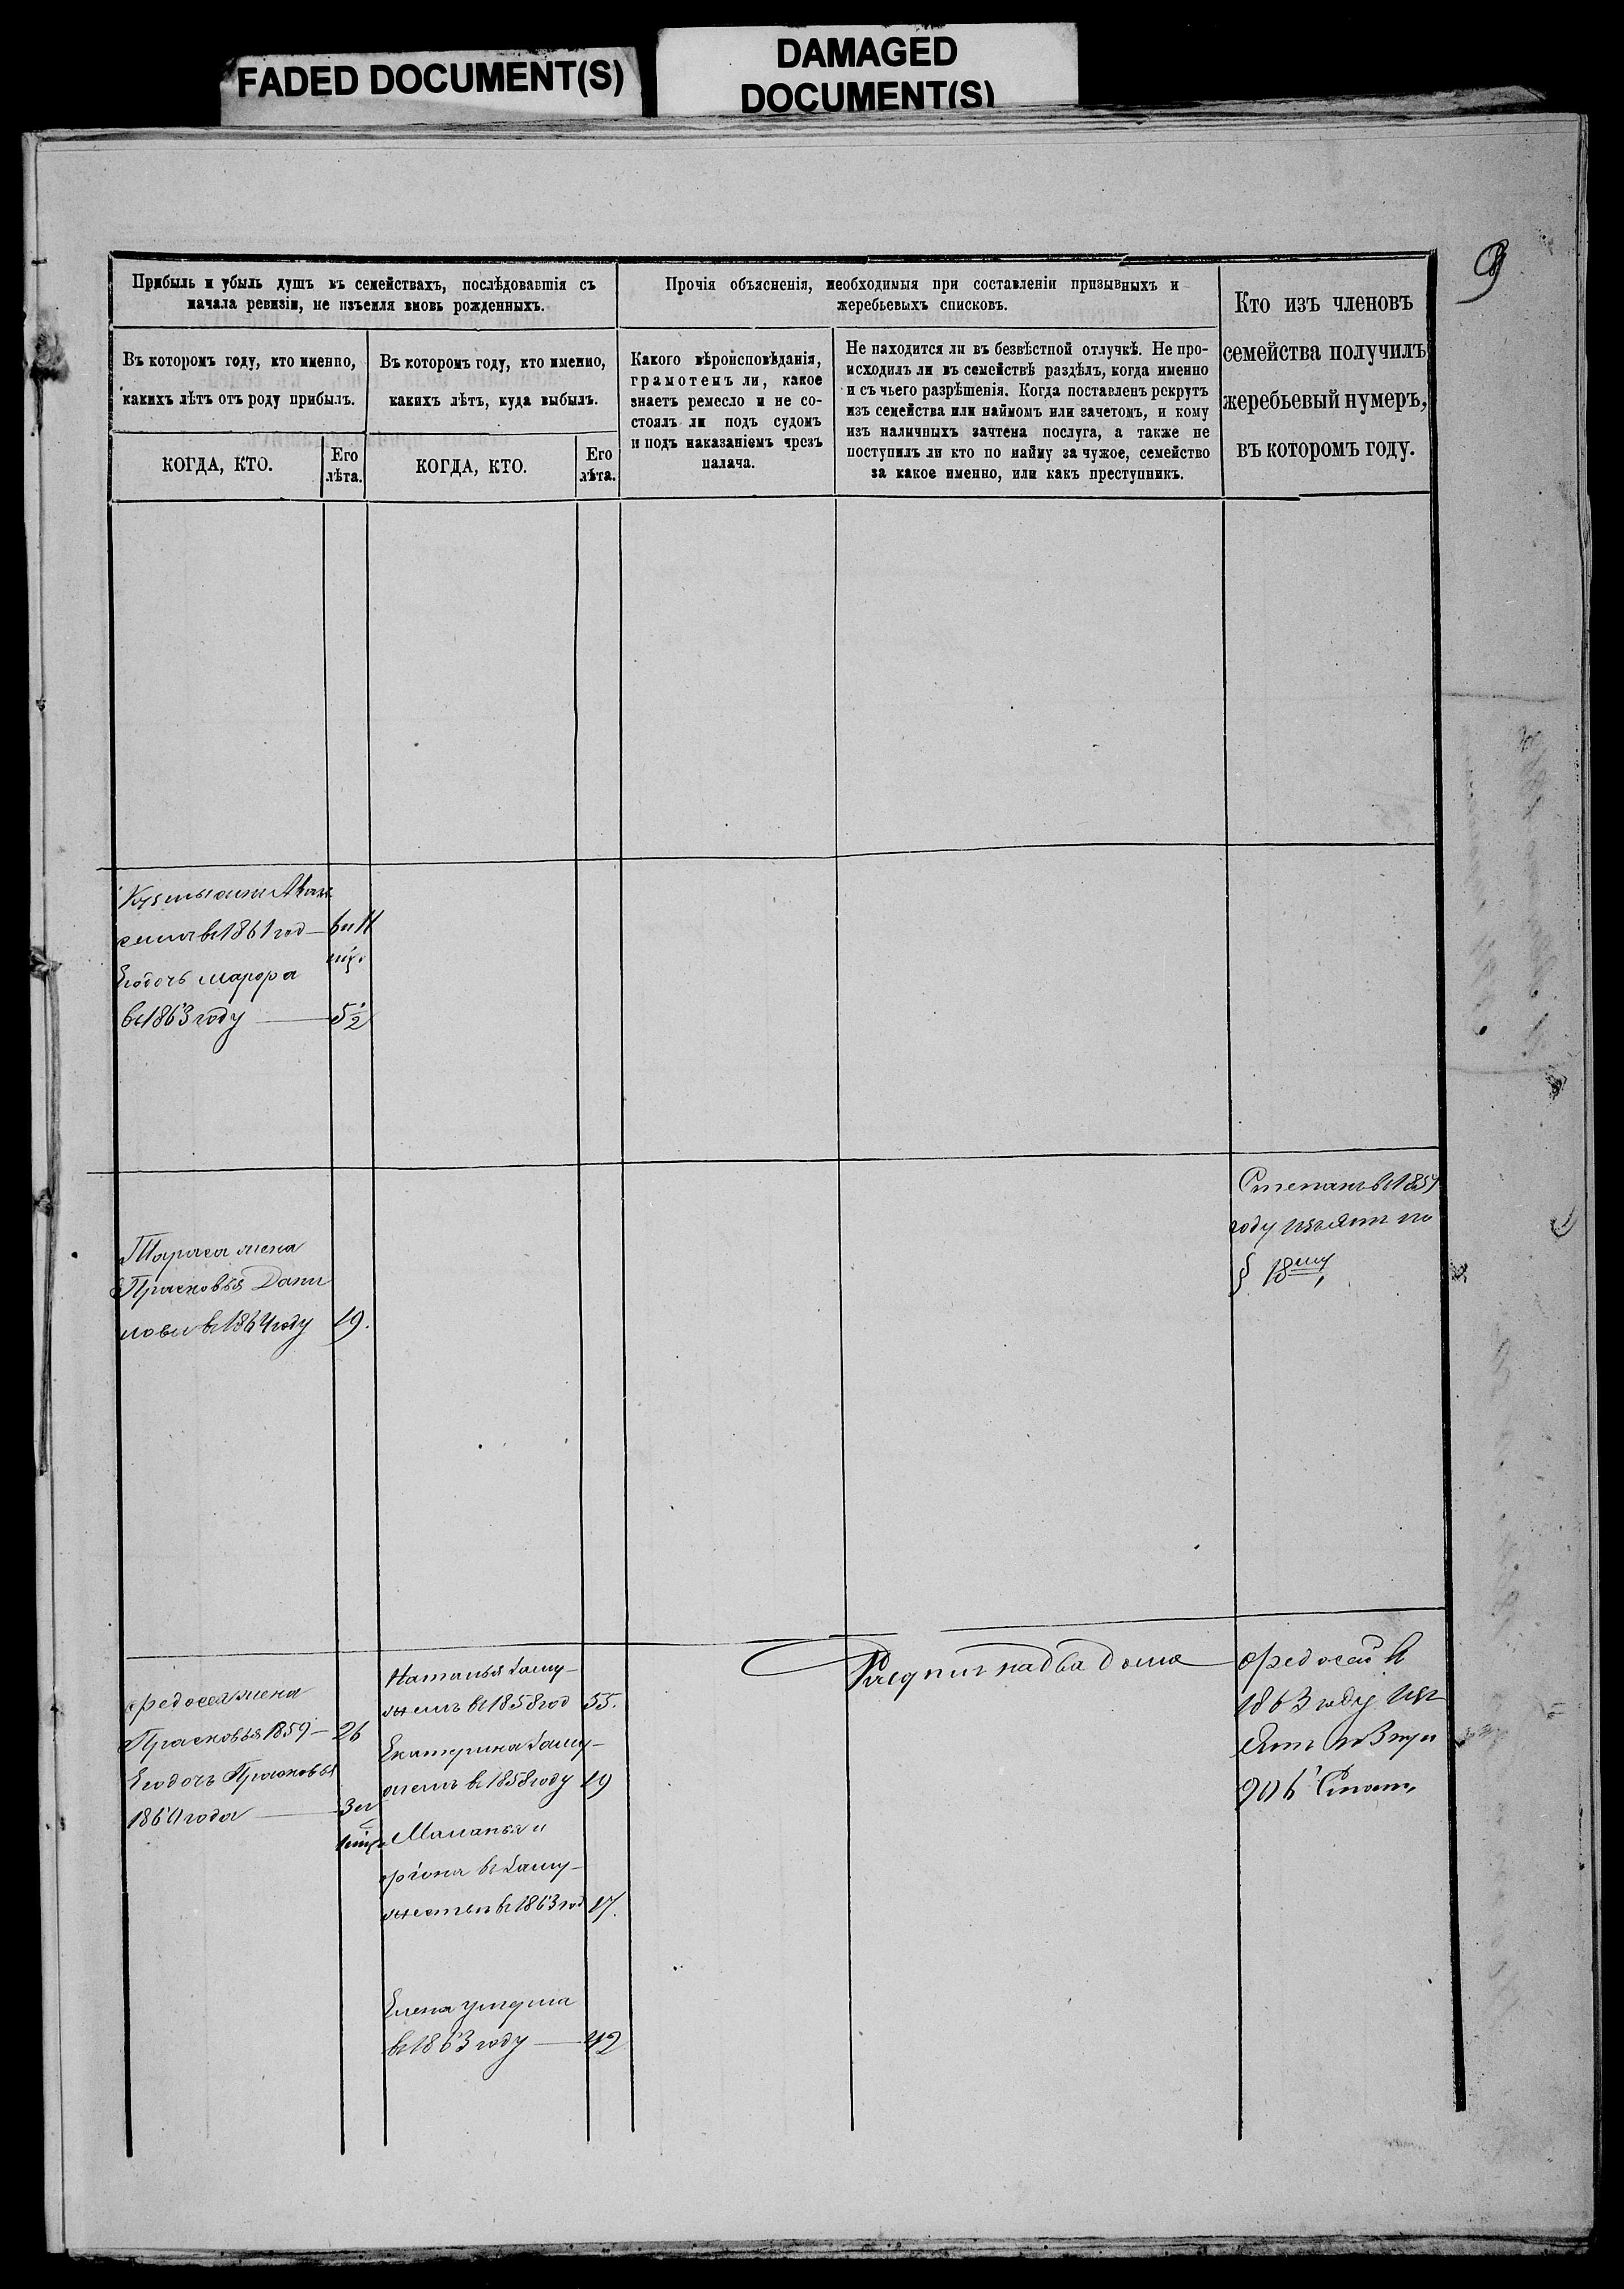 FADED DOCUMENT(S)
DAMAGED
DOCUMENT(S)
9
Прибыль и убыль душъ въ семействахъ, послѣдовавшія съ
начала ревизіи, не изъемля вновь рожденныхъ.
Прочія объясненія, необходимыя при составленіи призывныхъ и
жеребьевыхъ списковъ.
Кто изъ членовъ
семейства получилъ
жеребьевый нумеръ,
въ которомъ году.
Въ которомъ году, кто именно,
какихъ лѣтъ отъ роду прибылъ.
Въ которомъ году, кто именно,
какихъ лѣтъ, куда выбылъ.
Какого вѣроисповѣданія,
грамотенъ ли, какое
знаетъ ремесло и не со-
стоялъ ли подъ судомъ
и подъ наказаніемъ чрезъ
палача.
Не находится ли въ безвѣстной отлучкѣ. Не про-
исходилъ ли въ семействѣ раздѣлъ, когда именно
и съ чьего разрѣшенія. Когда поставленъ рекрутъ
изъ семейства или наймомъ или зачетомъ, и кому
изъ наличныхъ зачтена послуга, а также не
поступилъ ли кто по найму за чужое, семейство
за какое именно, или какъ преступникъ.
КОГДА, КТО.
Его
лѣта.
КОГДА, КТО.
Его
лѣта.
Кузьмы
въ 1861 год — 6 и 11
Егодочь марфа
въ 1863 году — 5½
Тараса жена
Прасковья Дани
лова въ 1864 году 19.
Степанъ въ 1854
году изъятъ по
§ 18му
Федосея жена
Прасковья 1859 — 26
Егодочь Прасковья
1860 года — 3 и
Наталья заму-
жемъ въ 1858 год 55.
Екатерина заму-
жемъ въ 1858 году 19
Маланья и
фiона въ заму-
жествѣ въ 1863 год 17.
Елена умерла
въ 1863 году — 42
на два дома
Федосей въ
1863 году изъ
ятъ по 3 пун
206 Стат,